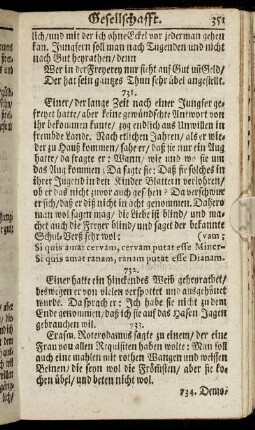 Gesellschafft. 351
lich/und mit der ich ohne Eckel vor jederman gehen
kan. Jungfern soll man nach Tugenden und nicht
nach Gut heyrathen/ denn
Wer in der Freyerey nur sieht auf Gut uñ Geld/
Der hat sein gantzes Thun sehr übel angestellt.
731.
Einer/ der lange Zeit nach einer Jungfer ge-
freyet hatte/ aber keine gewündschte Antwort von
ihr bekommen kunte/ zog endlich aus Unwillen in
frembde Länder. Nach etlichen Jahren/ als er wie-
der zu Hauß kommen/ sahe er/ daß sie nur ein Aug
hatte/ da fragte er: Wann/ wie und wo sie um
das Aug kommen: Da sagte sie: Daß sie solches in
ihrer Jugend in den Kinder Blattern verlohren/
ob er das nicht zuvor auch gesehen? Da verschwur
er sich/ daß er diß nicht in acht genommen. Dahero
man wol sagen mag/ die Liebe ist blind/ und ma-
chet auch die Freyer blind/ und sagt der bekannte
Schul-Verß sehr wol: (vam;
Si quis amat cervam, cervam putat esse Miner-
Si quis amat ranam, ranam putat esse Dianam.
732.
Einer hatte ein hinckendes Weib geheyrathet/
deswegen er von vielen verspottet und ausgehöhnet
wurde. Da sprach er: Ich habe sie nicht zu dem
Ende genommen/ daß ich sie auf das Hasen Jagen
gebrauchen wil.
733.
Erasm. Roterodamus sagte zu einem/ der eine
Frau von allen Requisiten haben wolte: Man soll
auch eine mahlen mit rothen Wangen und weissen
Beinen/ die seyn wol die Frömsten/ aber sie ko-
chen übel/ und beten nicht wol.
734. Demo-